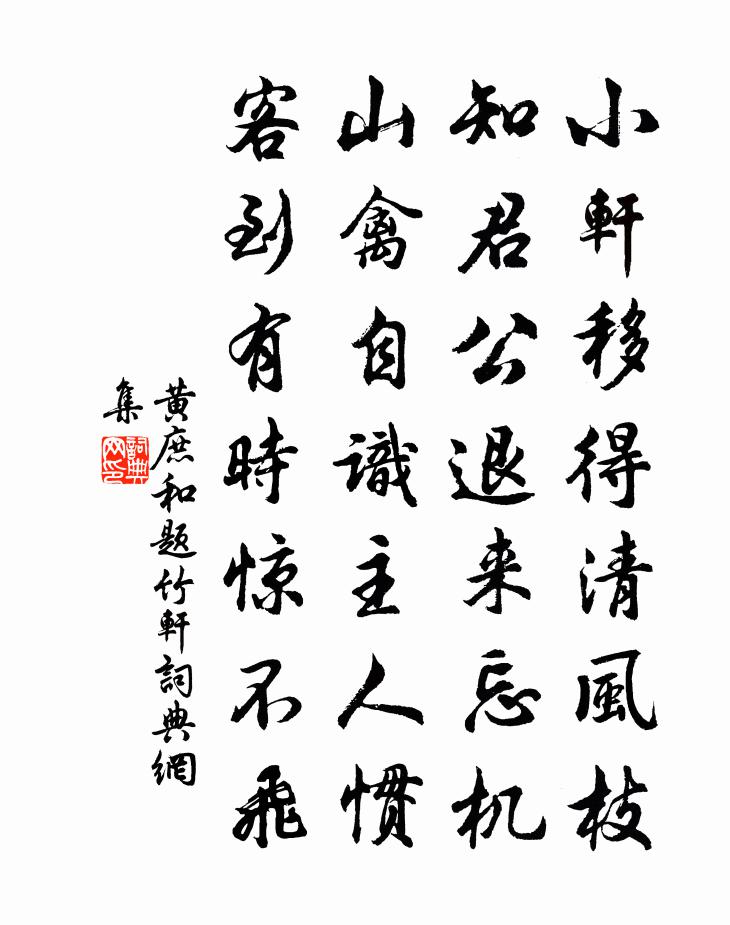 小軒移得清風枝
知君公退来忘机
山禽自識主人慣
客到有時惊不飛
黃庶和題竹軒詞典網
集
詞典
网印